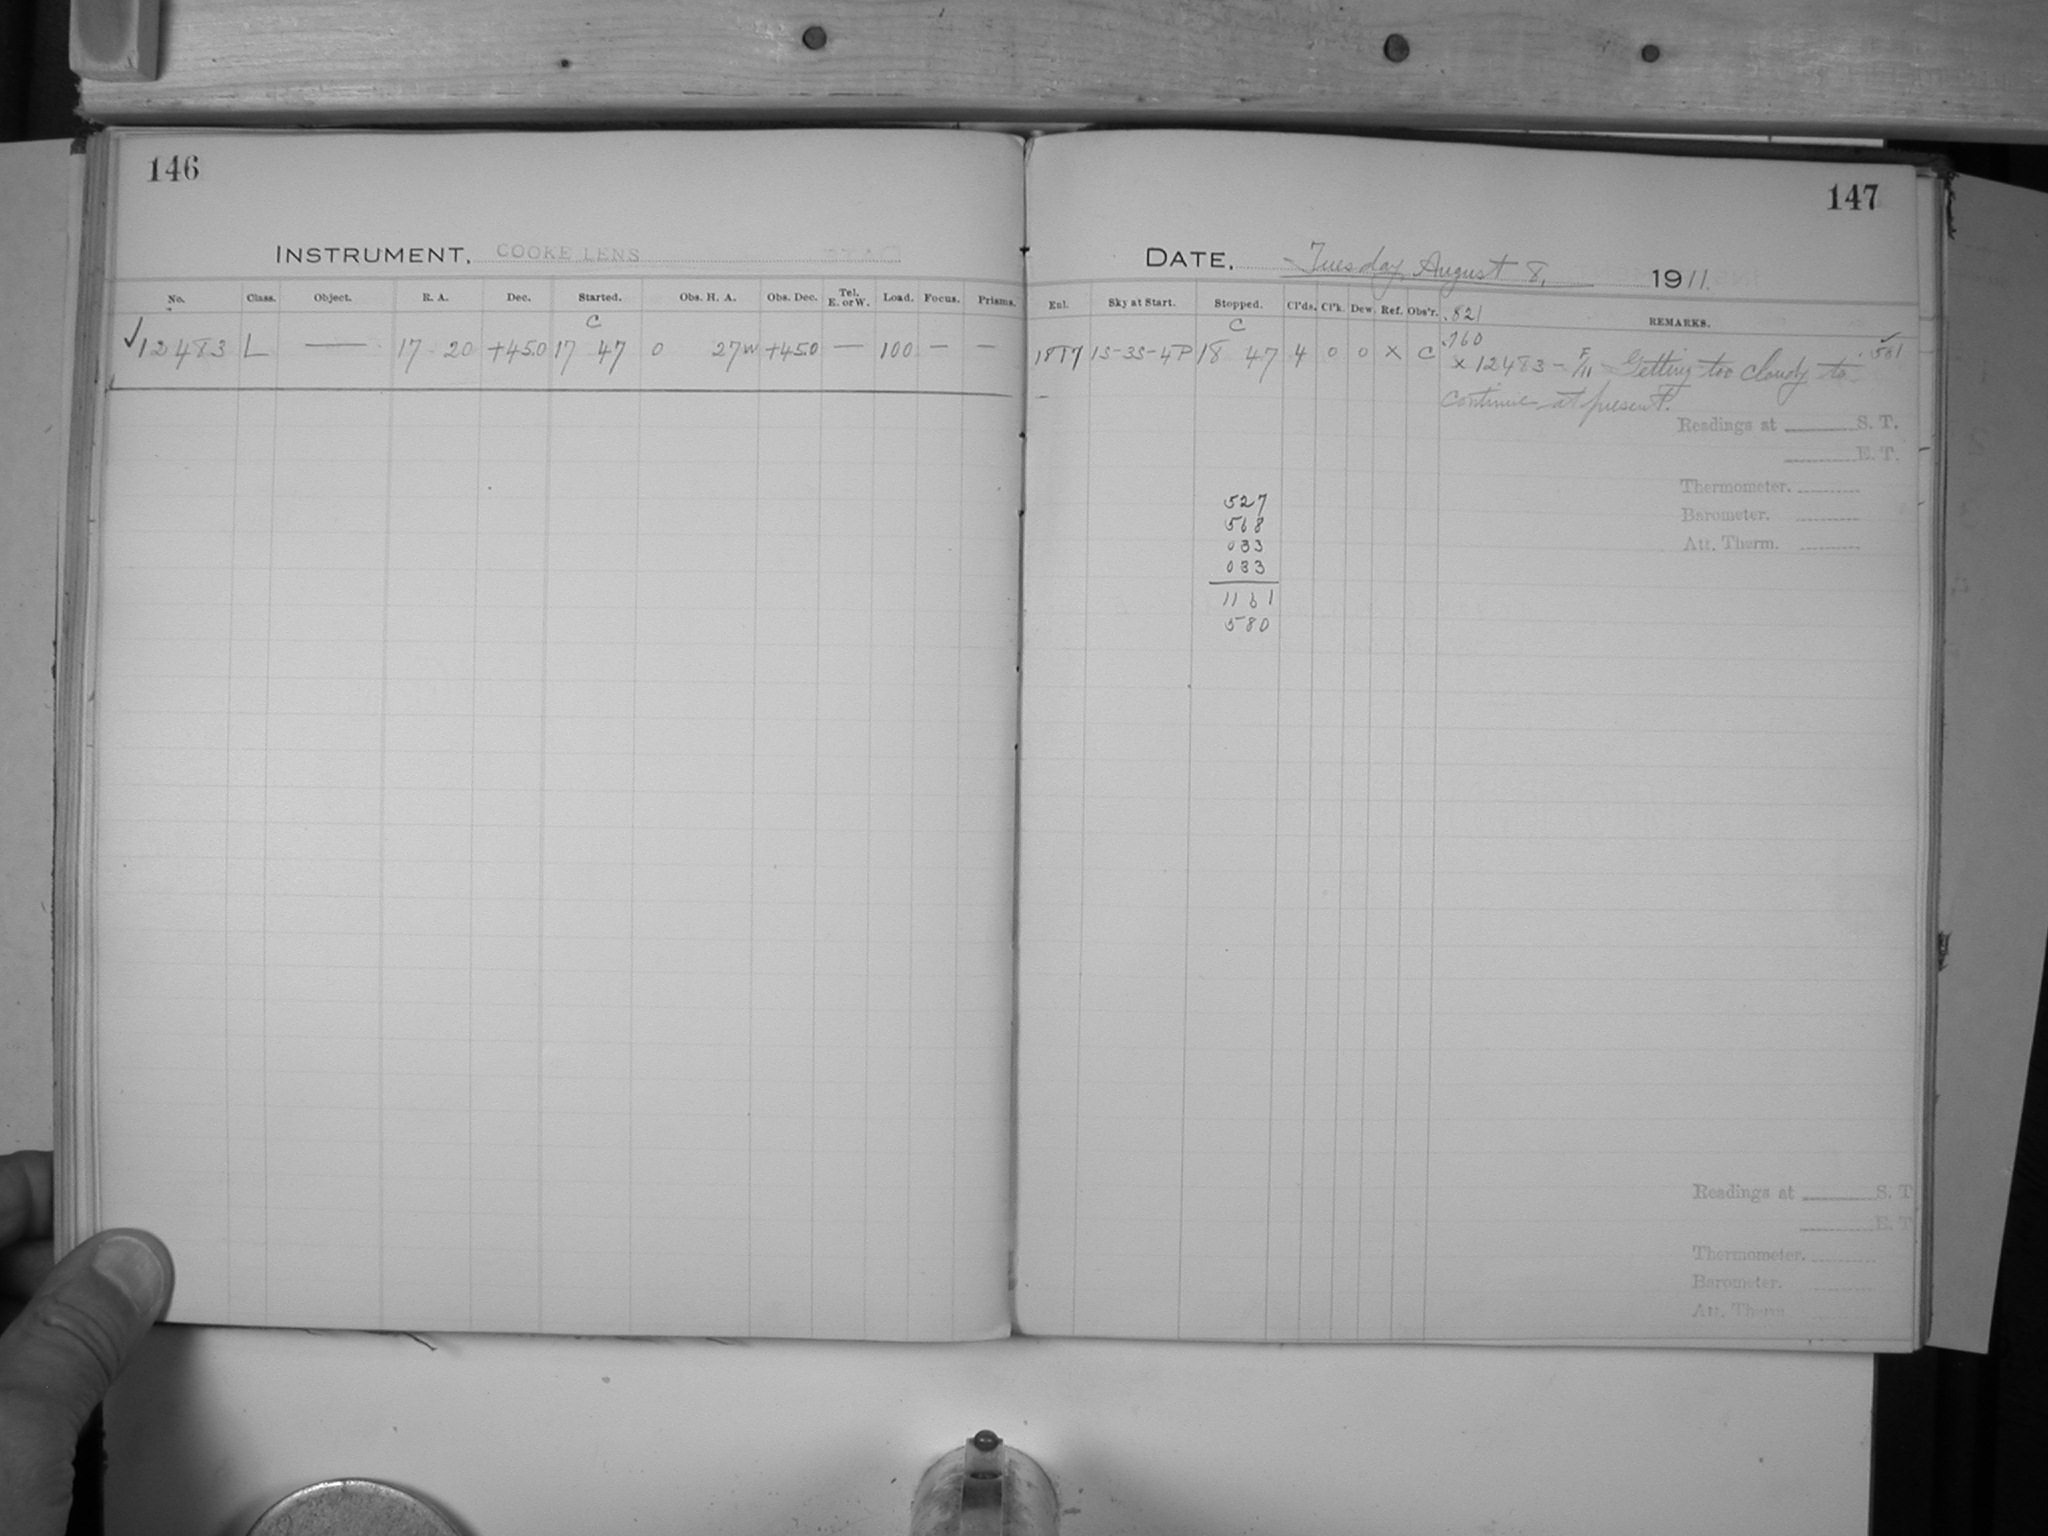 146
147
INSTRUMENT, COOKE LENS
DATE, Tuesday August 8, 1911.
No. Class. Object. R. A. Dec. Started. Obs. H. A. Obs. Dec. Tel. E. or W. Load. Focus. Prisms.
Enl. Sky at Start. Stopped. Cl'ds. Cl'k. Dew. Ref. Obs'r. .821 REMARKS.
C
C
.760
✓12483 L — 17 20 +45.0 17 47 0 27W +45.0 — 100 — —
1S-3S-4P 18 47 4 0 0 X C x 12483 - F/11 Getting too cloudy to
continue at present.
Readings at S. T.
E. T.
Thermometer.
Barometer.
Att. Therm.
527
568
033
033
1161
580
Readings at S. T
E. T
Thermometer.
Barometer.
Att. Therm